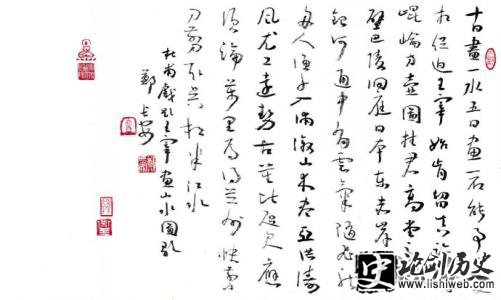 十日畫一水五日畫一石能事
相促迫王宰始肯留真跡
崑崙方壺圖挂君高堂之
壁巴陵洞庭日本東赤岸
銀河通中有雲氣隨飛龍
舟人漁子入浦溆山木盡亞洪濤
風尤工遠勢古莫比咫尺應
須論萬里焉得并州快剪
刀剪取吳松半江水
杜甫戲題王宰畫山水圖歌
鄭
史 论剑历史
www.lishiweb.com